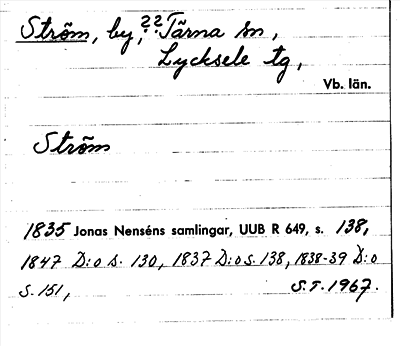 Ström, by, ?? Tärna sn,
Lycksele tg,
Vb. län.
Ström
1835 Jonas Nenséns samlingar, UUB R 649, s. 138,
1847 D:o s. 130, 1837 D:o s. 138, 1838-39 D:o
s. 151, S.T. 1967.